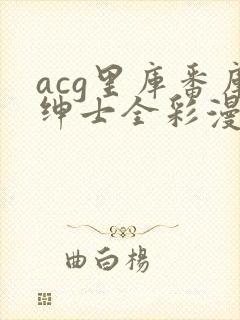 acg里库番库
绅士全彩漫
曲白杨